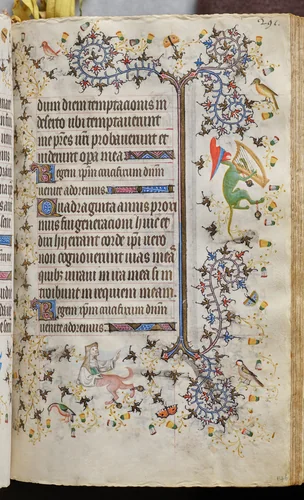 dum diem temptacionis in
deserto ubi temptaverunt
me pr̄es vr̄i probaverunt et
viderunt opa mea
Regem ip̄m anc̄torum dn̄m
venite adoremus
Quadraginta annis prori
mus fui generacioni huic et
dixi hii errant corde ip̄i vero
non cognoverunt vias meas
quib; iuravi in ira mea si in
troibunt in requiem meam
Regem ip̄m
venite adoremus